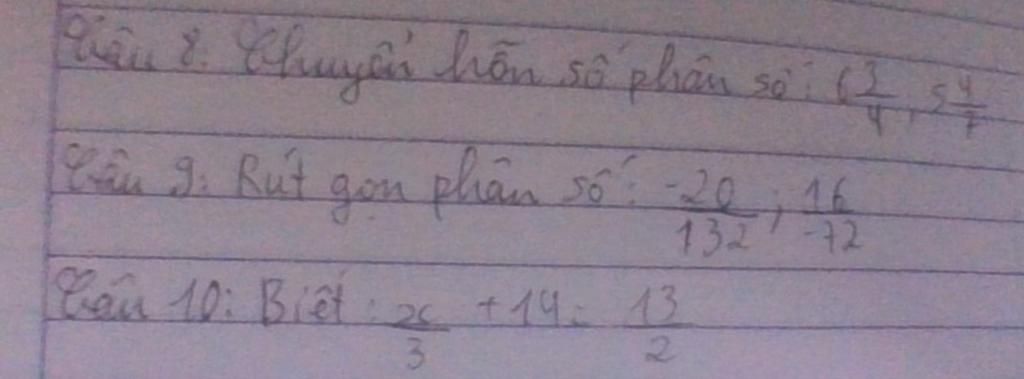 Câu 8: Chuyển hỗn số phân số: 6 3/4, 5 4/7
Câu 9: Rút gọn phân số: -20/132; 16/-72
Câu 10: Biết: x/3 + 14 = 13/2